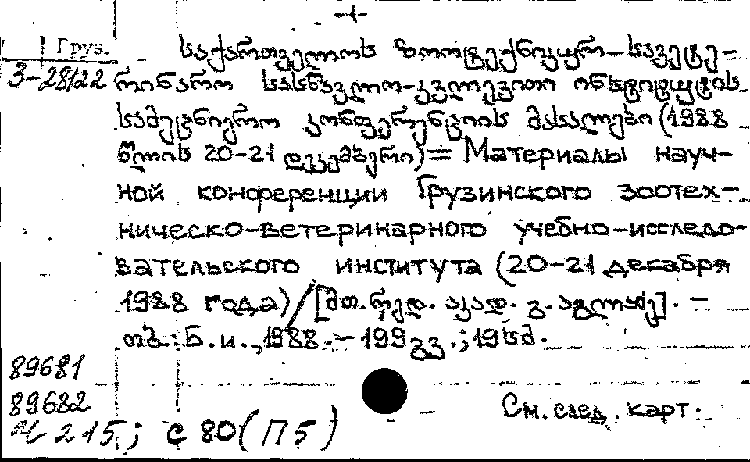 -1-
Груз. საქართველოს ზოოტექნიკურ-სავეტე-
3-28122 რინარო სასწავლო-კვლევითი ინსტიტუტის
სამეცნიერო კონფერენციის მასალები (1988
წლის 20-21 დეკემბერი) = Материалы науч-
ной конференции Грузинского зоотех-
ническо-ветеринарного учебно-исследо-
вательского института (20-21 декабря
1988 года) / [მთ. რედ. აკად. გ. აგლაძე]. -
თბ. : Б. и., 1988. - 199 გვ. ; 19 სმ.
89681
89682 См. след. карт.
215; с 80 (П5)